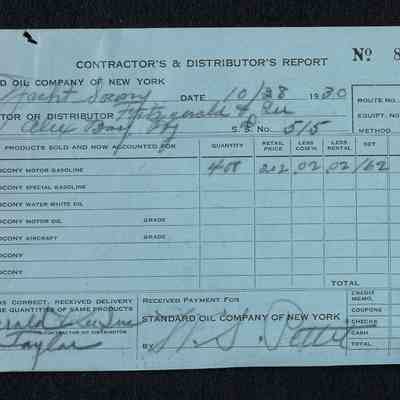 CONTRACTOR'S & DISTRIBUTOR'S REPORT
Nº 8
RD OIL COMPANY OF NEW YORK
Yacht Socony DATE 10/28 1930
ROUTE NO.
TOR OR DISTRIBUTOR Fitzgerald & Lee
EQUIPT. NO.
Alex Bay, NY S. S. No. 515
METHOD
PRODUCTS SOLD AND NOW ACCOUNTED FOR QUANTITY RETAIL PRICE LESS COM'N. LESS RENTAL NET
OCONY MOTOR GASOLINE 408 202 02 02 /62
OCONY SPECIAL GASOLINE
OCONY WATER WHITE OIL
OCONY MOTOR OIL GRADE
OCONY AIRCRAFT GRADE
OCONY
OCONY
TOTAL
AS CORRECT, RECEIVED DELIVERY
THE QUANTITIES OF SAME PRODUCTS
RECEIVED PAYMENT FOR
STANDARD OIL COMPANY OF NEW YORK
CREDIT MEMO.
COUPONS
CHECKS
CASH
TOTAL
erald & Lee Inc
CONTRACTOR OR DISTRIBUTOR
Taylor
BY